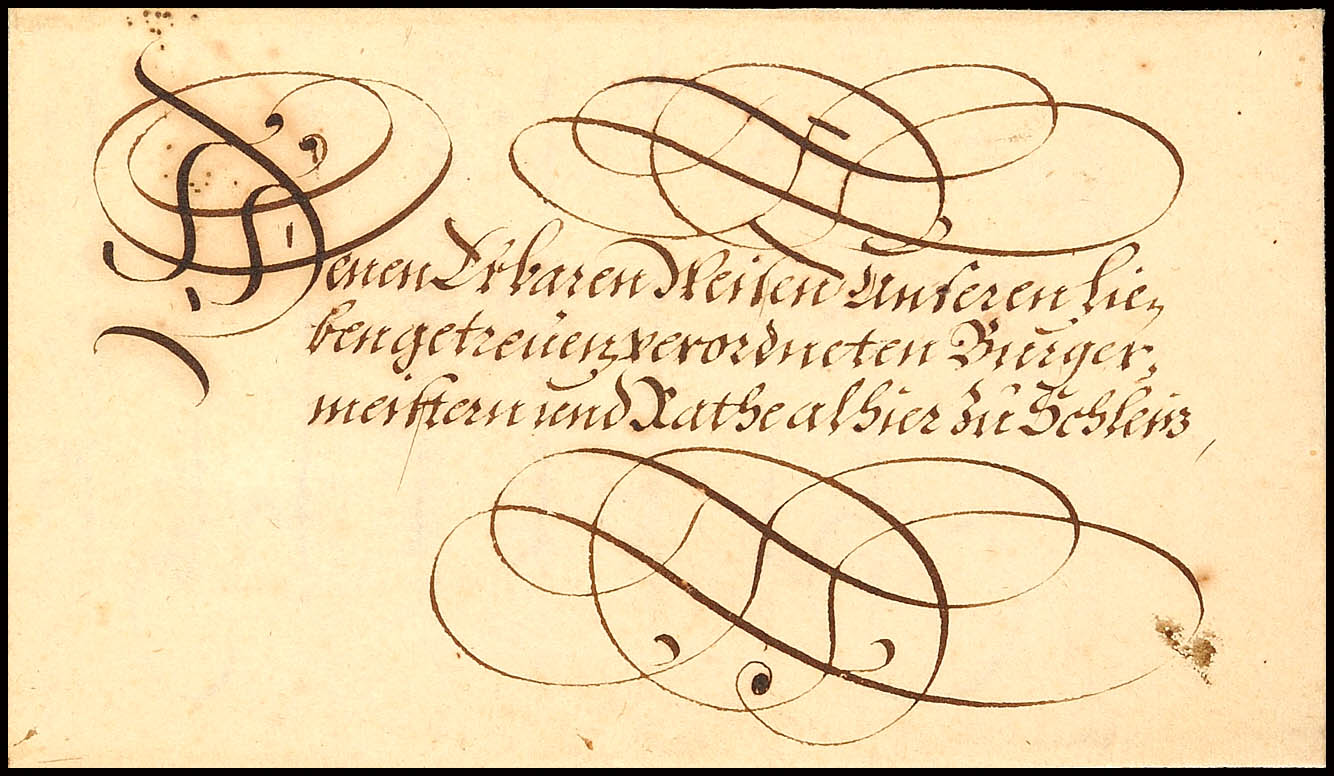 Denen Erbaren Weisen Unseren lie-
ben getreuen, verordneten Burger-
meistern und Rathe alhier zu Schleiz,